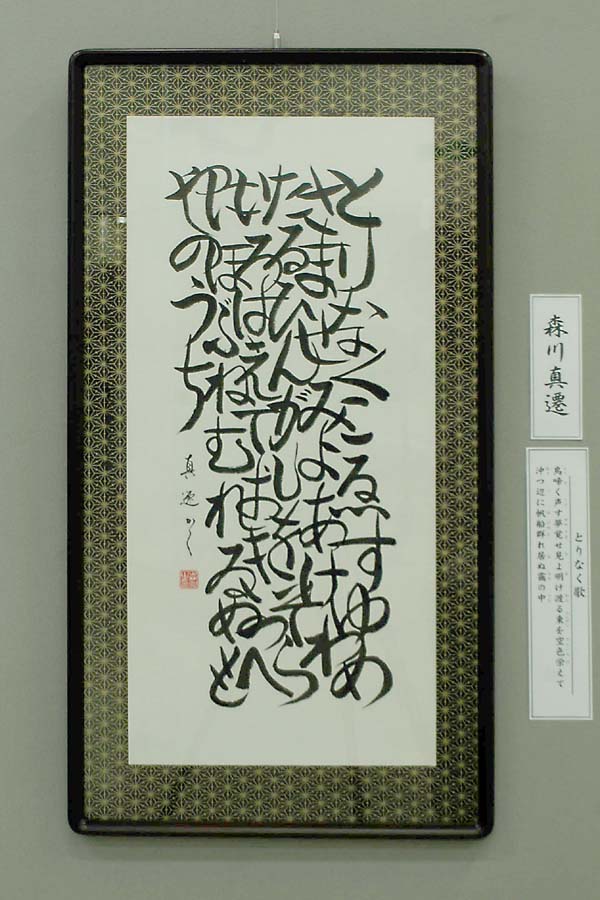 とりなくこゑすゆめ
さませみよあけわ
たるひんがしをそら
いろはえておきつへ
にほぶねむれゐぬも
やのうち
真遷かく
森川真遷
とりなく歌
鳥啼く声す夢覚せ見よ明け渡る東を空色栄えて
沖つ辺に帆船群れ居ぬ靄の中